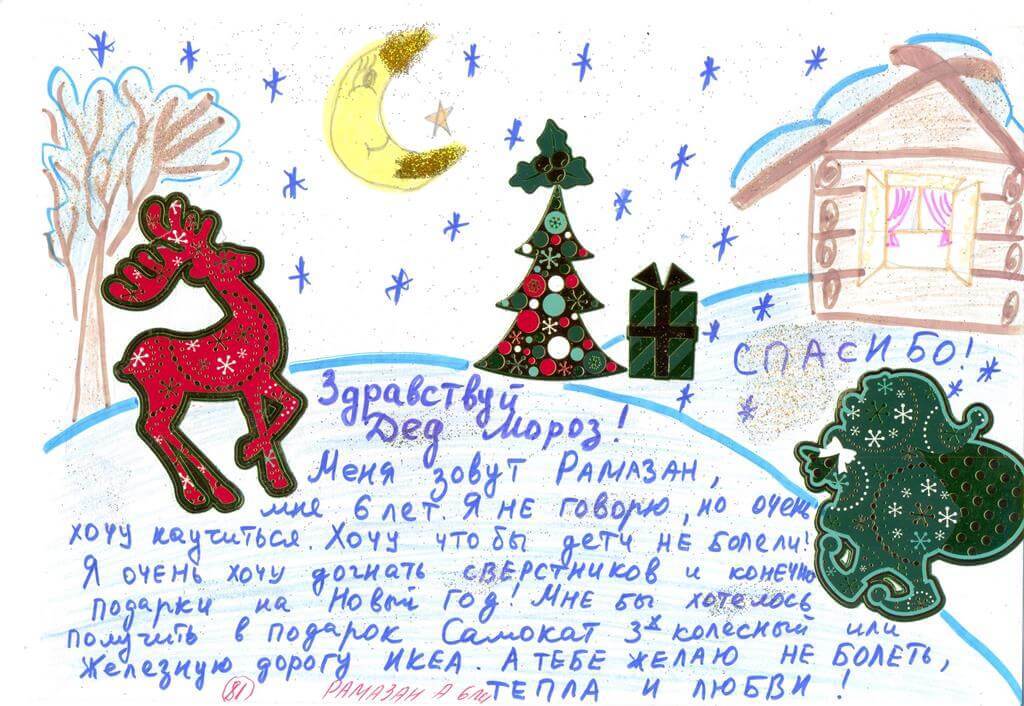 СПАСИБО!
Здравствуй
Дед Мороз!
Меня зовут РАМАЗАН,
мне 6 лет. Я НЕ говорю, но очень
хочу научиться. Хочу что бы дети не болели!
Я очень хочу догнать СВЕРСТНИКОВ и конечно
подарки на Новый Год! Мне бы хотелось
получить в подарок Самокат 3х колесный или
Железную дорогу ИКЕА. А ТЕБЕ ЖЕЛАЮ НЕ БОЛЕТЬ,
ТЕПЛА И ЛЮБВИ!
81 РАМАЗАН А 6 лет